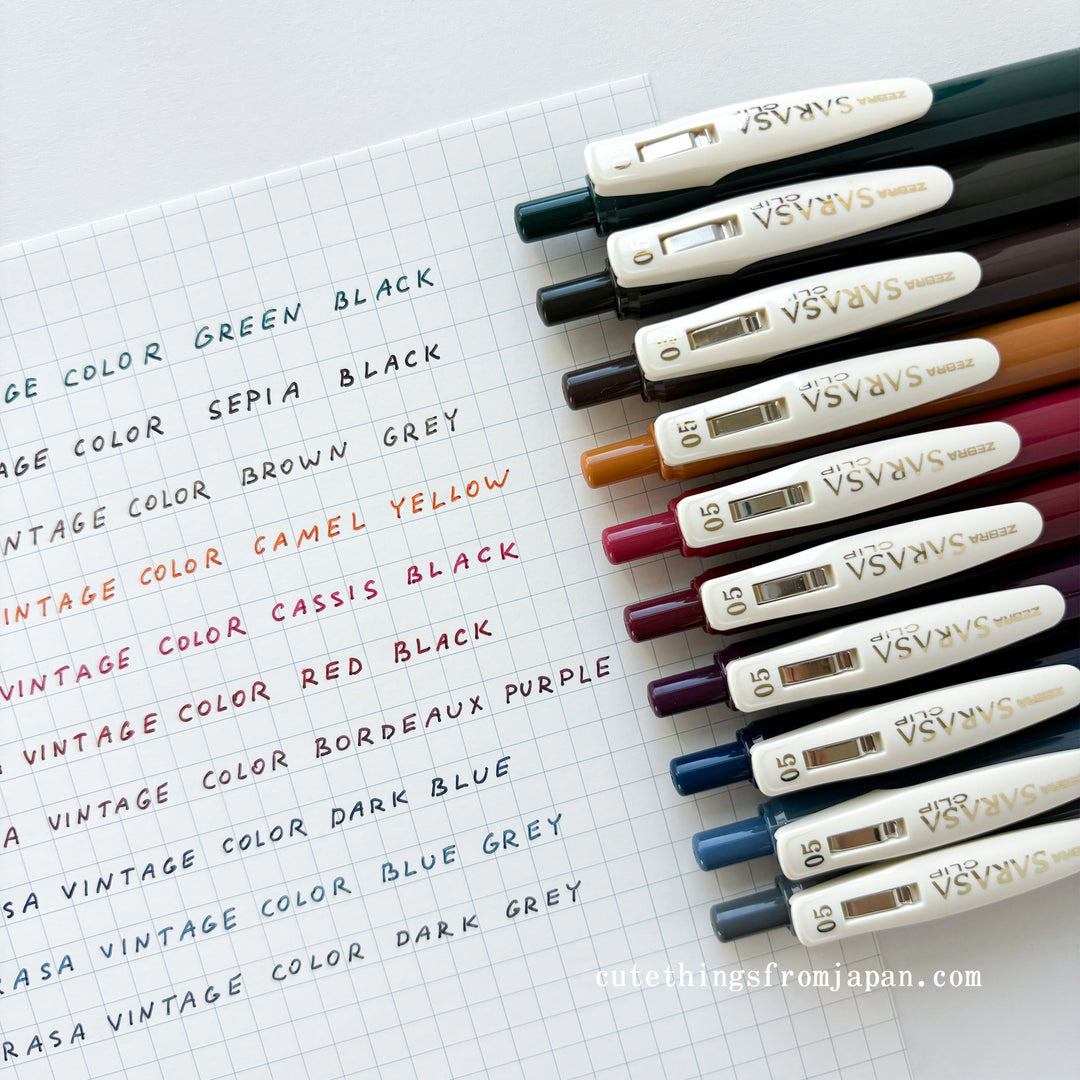 GE COLOR GREEN BLACK
AGE COLOR SEPIA BLACK
NTAGE COLOR BROWN GREY
INTAGE COLOR CAMEL YELLOW
VINTAGE COLOR CASSIS BLACK
VINTAGE COLOR RED BLACK
A VINTAGE COLOR BORDEAUX PURPLE
SA VINTAGE COLOR DARK BLUE
RASA VINTAGE COLOR BLUE GREY
RASA VINTAGE COLOR DARK GREY
ZEBRA SARASA CLIP
ZEBRA SARASA CLIP 05
ZEBRA SARASA CLIP
ZEBRA SARASA CLIP 05
ZEBRA SARASA CLIP 05
ZEBRA SARASA CLIP 05
ZEBRA SARASA CLIP 05
ZEBRA SARASA CLIP 05
ZEBRA SARASA CLIP 05
SARASA CLIP 05
cutethingsfromjapan.com